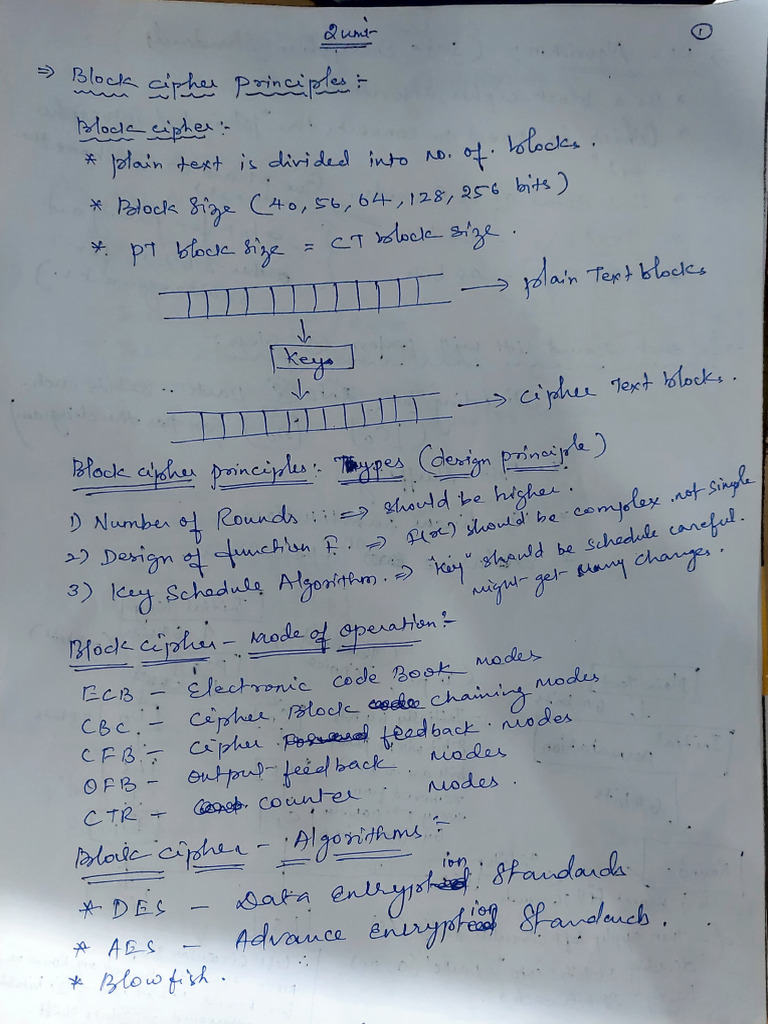 2 unit
1
⇒ Block cipher principles :-
Block cipher :-
* plain text is divided into no. of. blocks.
* Block size (40, 56, 64, 128, 256 bits)
* PT block size = CT block size.
→ plain Text blocks
Key
→ cipher Text blocks.
Block cipher principles: Types (design principle)
1) Number of Rounds. ⇒ should be higher.
2) Design of function F. ⇒ F(x) should be complex not simple
3) Key Schedule Algorithm. ⇒ "Key" should be schedule careful.
might get many changes.
Block cipher - mode of operation :-
ECB - Electronic code Book modes
CBC - cipher Block chaining modes
CFB - cipher feedback modes
OFB - output feedback modes
CTR - counter modes.
Block cipher - Algorithms :-
* DES - Data encryption Standards
* AES - Advance encryption Standards.
* Blowfish.